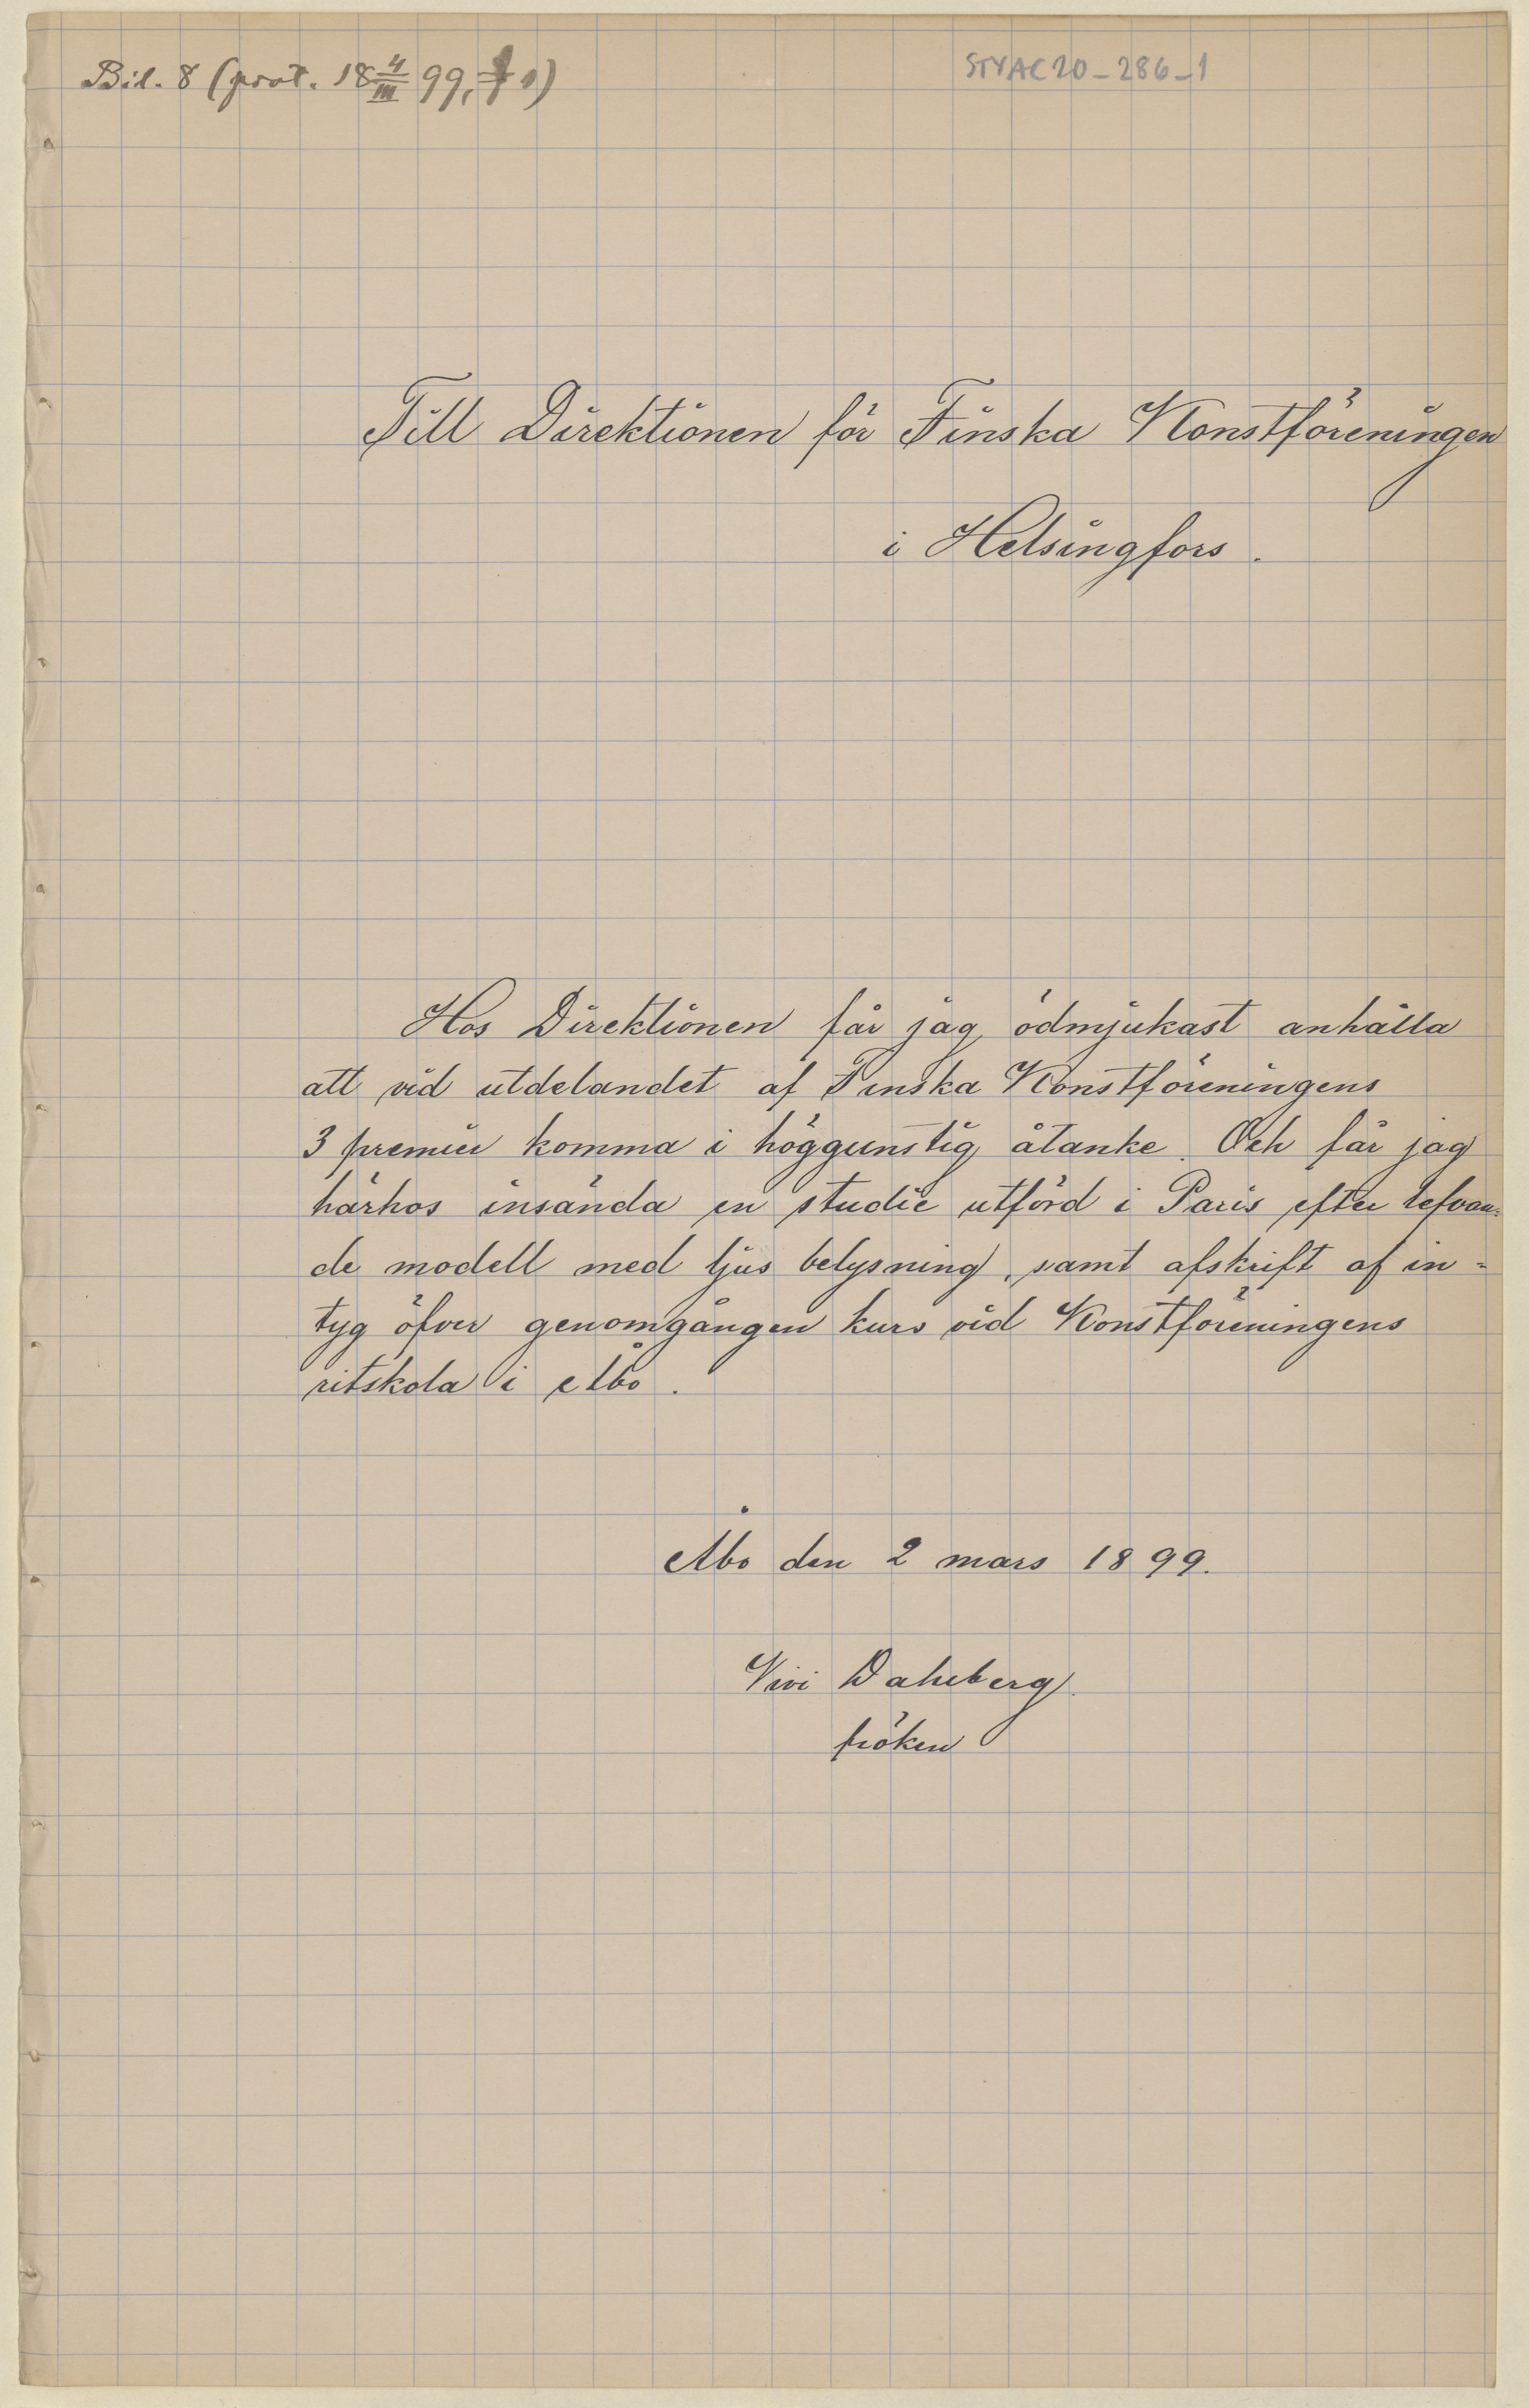 Bil. 8 (prot. 18 4/III 99, § 1)
STYAC20-286-1
Till Direktionen för Finska Konstföreningen
i Helsingfors.
Hos Direktionen får jag ödmjukast anhålla
att vid utdelandet af Finska Konstföreningens
3 premier komma i höggunstig åtanke. Och får jag
härhos insända en studie utförd i Paris efter lefvan=
de modell med ljus belysning, samt afskrift af in=
tyg öfver genomgången kurs vid Konstföreningens
ritskola i Åbo.
Åbo den 2 mars 1899.
Vivi Dahlberg.
fröken